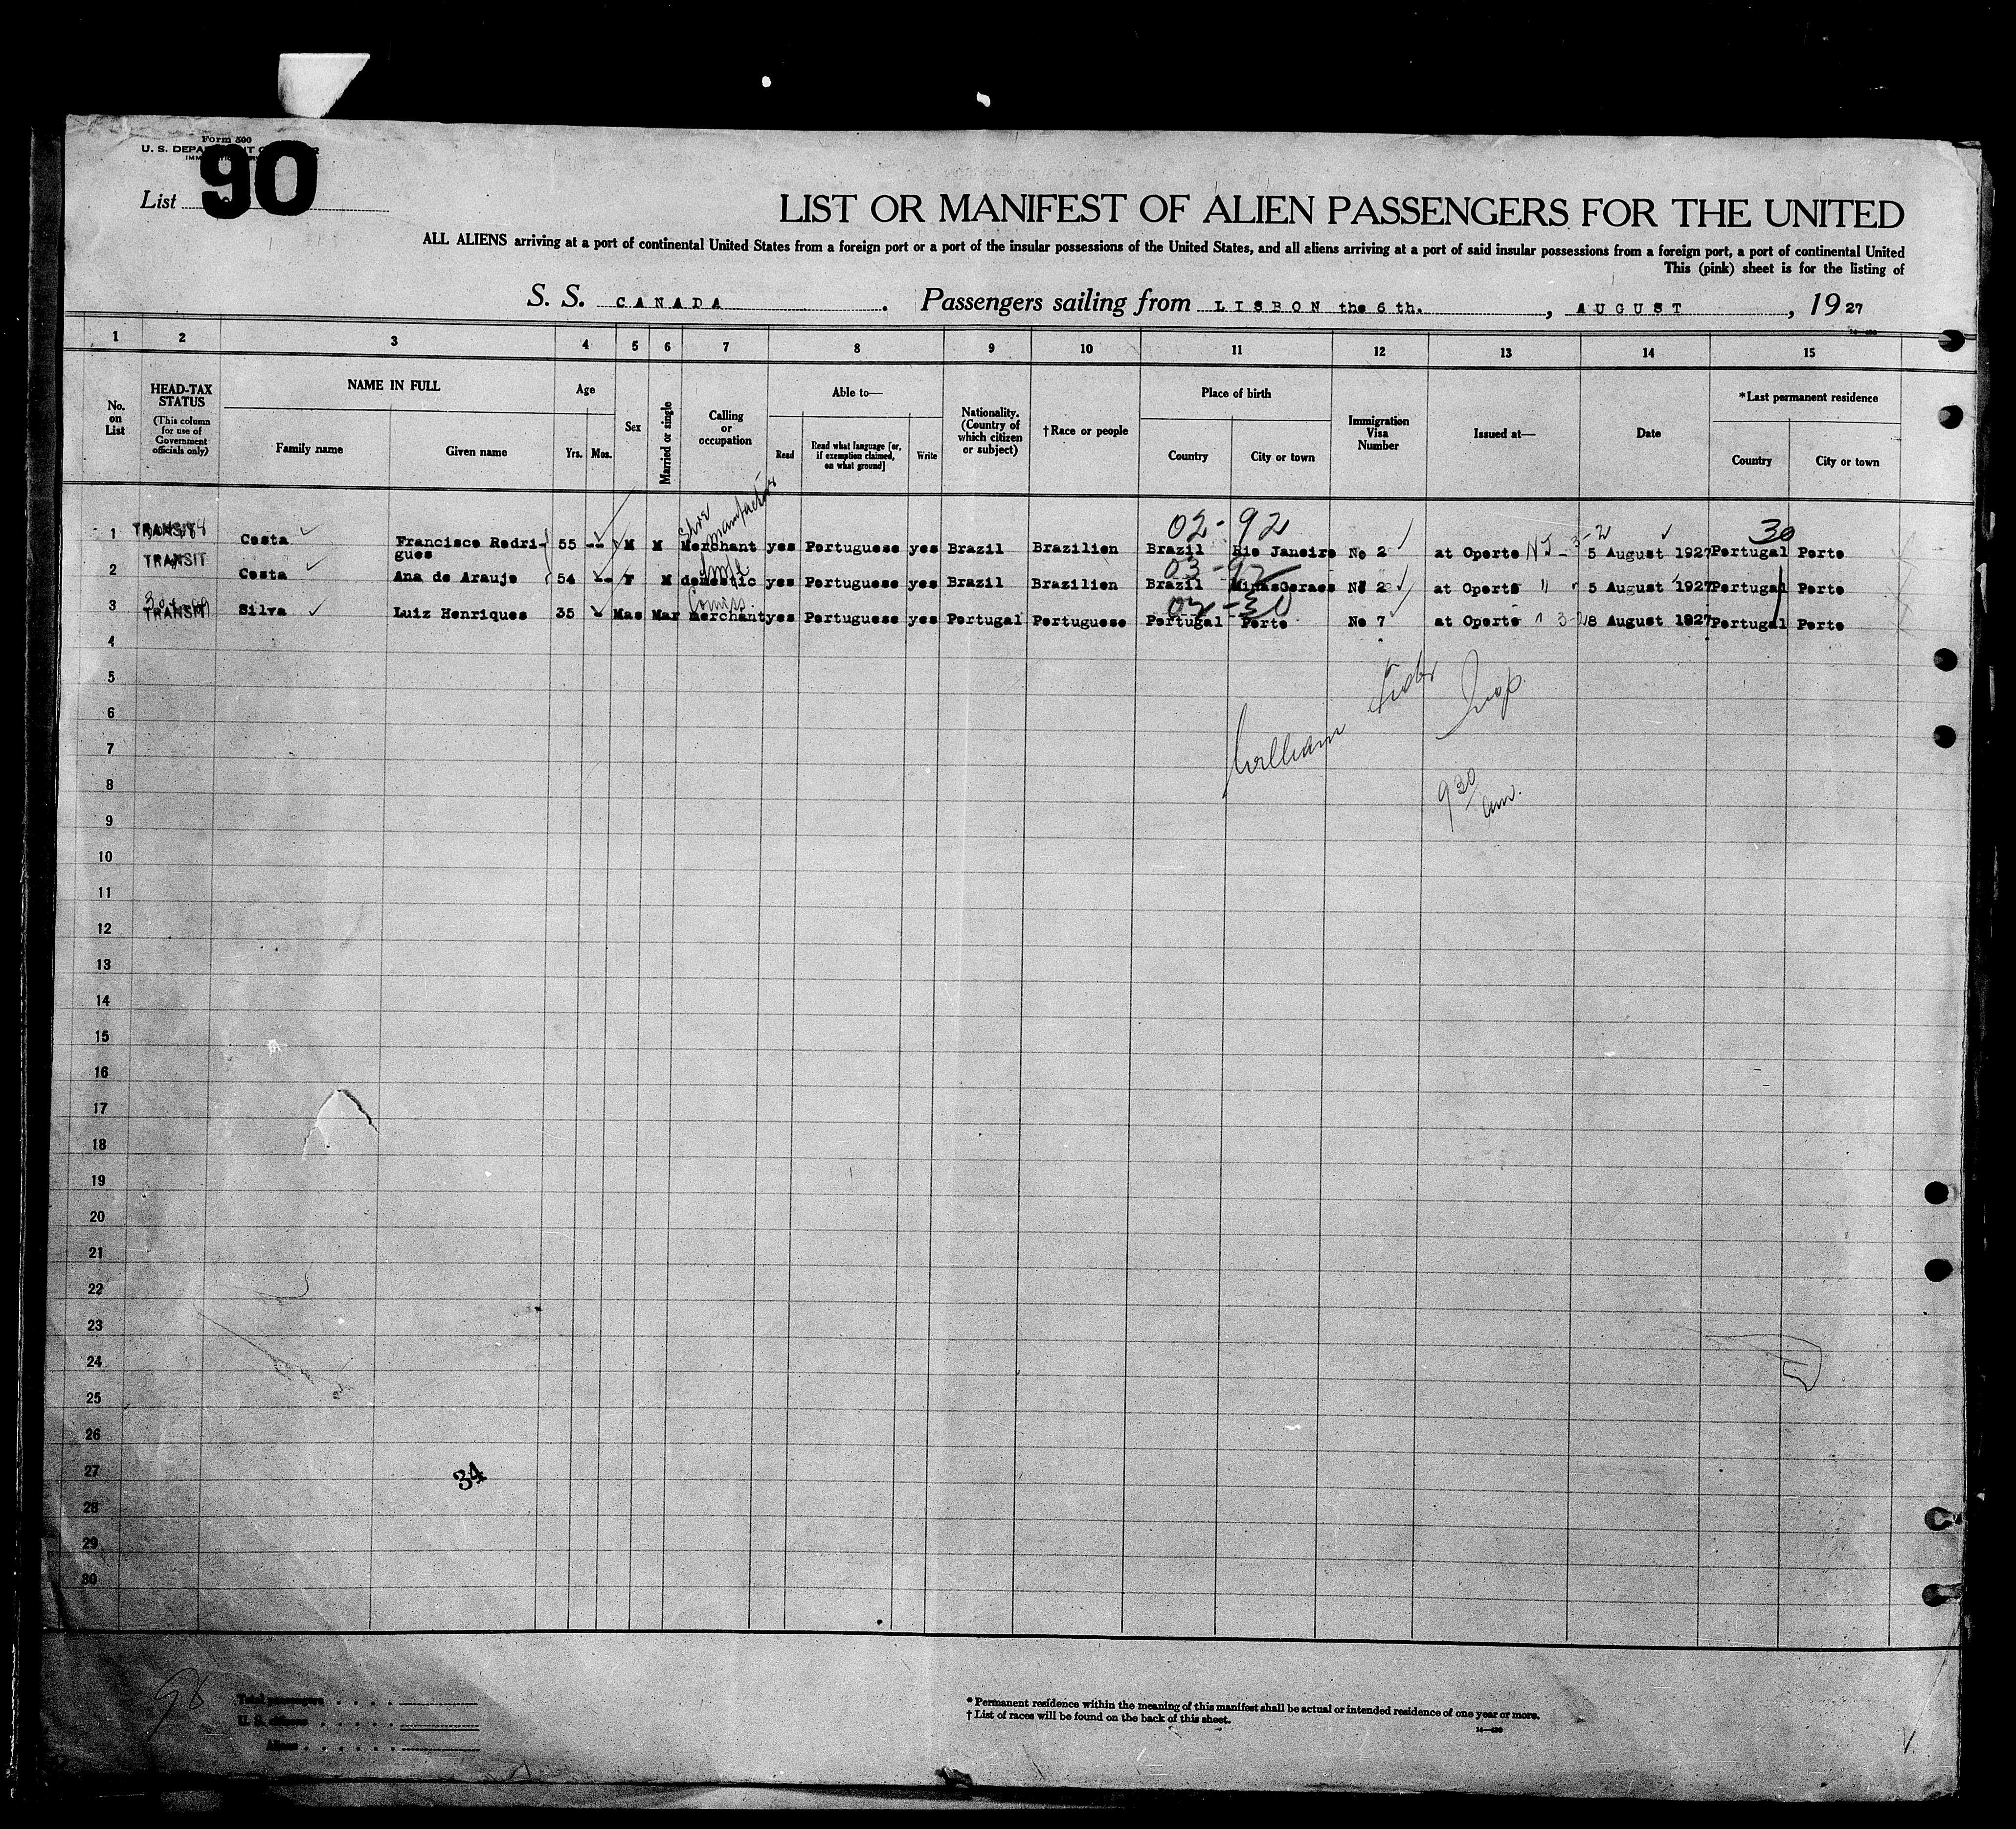 Form 500
U. S. DEPA
List 90
LIST OR MANIFEST OF ALIEN PASSENGERS FOR THE UNITED
ALL ALIENS arriving at a port of continental United States from a foreign port or a port of the insular possessions of the United States, and all aliens arriving at a port of said insular possessions from a foreign port, a port of continental United
This (pink) sheet is for the listing of
S. S. CANADA. Passengers sailing from LISBON the 6 th., AUGUST, 1927
1 2 3 4 5 6 7 8 9 10 11 12 13 14 15
No. on List
HEAD-TAX STATUS
(This column for use of Government officials only)
NAME IN FULL
Family name Given name
Age
Yrs. Mos.
Sex
Married or single
Calling or occupation
Able to—
Read
Read what language [or, if exemption claimed, on what ground]
Write
Nationality. (Country of which citizen or subject)
†Race or people
Place of birth
Country City or town
Immigration Visa Number
Issued at—
Date
*Last permanent residence
Country City or town
Shoe manufactor
02-92 30
1 TRANSIT Costa Francisco Rodri-gues 55 -- M M Merchant yes Portuguese yes Brazil Brazilien Brazil Rio Janeiro No 2 at Oporto 3-2 5 August 1927 Portugal Porto
03-92
2 TRANSIT Costa Ana de Araujo 54 -- F M domestic yes Portuguese yes Brazil Brazilien Brazil MinasGeraes No 2 at Oporto " " 5 August 1927 Portugal Porto
Comiss.
02-30
3 TRANSIT Silva Luiz Henriques 35 Mas Mar merchant yes Portuguese yes Portugal Portuguese Portugal Porto No 7 at Oporto 3-2 8 August 1927 Portugal Porto
4
5
6
William Insp.
7
8
930 am.
9
10
11
12
13
14
15
16
17
18
19
20
21
22
23
24
25
26
27
34
28
29
30
98
Total passengers
U. S. citizens
Aliens
* Permanent residence within the meaning of this manifest shall be actual or intended residence of one year or more.
† List of races will be found on the back of this sheet.
14—490